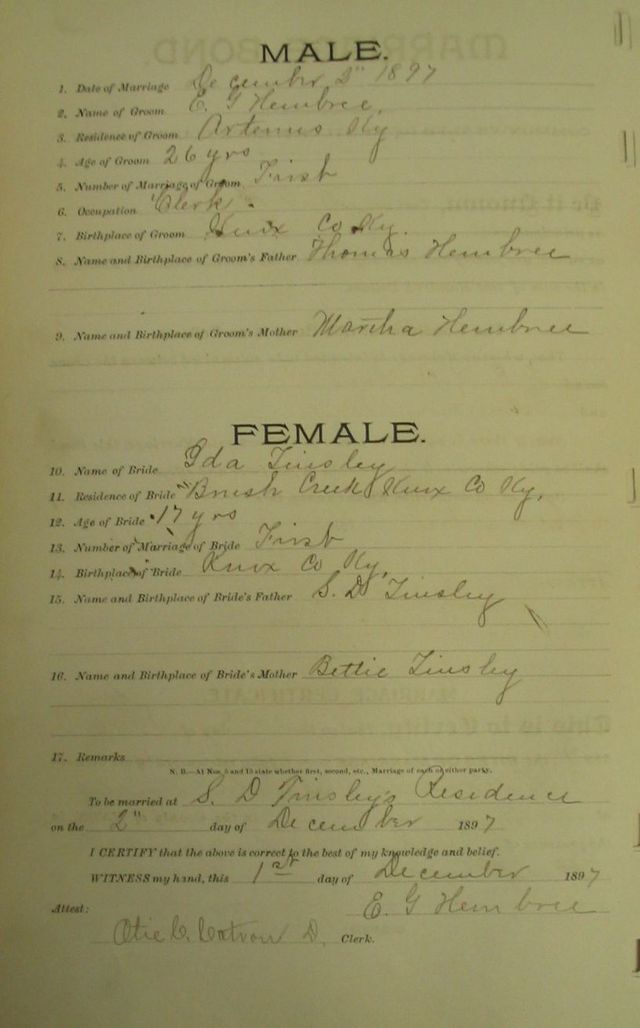 MALE.
1. Date of Marriage December 2" 1897
2. Name of Groom E. G Hembree.
3. Residence of Groom Artemus Ky
4. Age of Groom 26 yrs
5. Number of Marriage of Groom First
6. Occupation Clerk.
7. Birthplace of Groom Knox Co Ky.
8. Name and Birthplace of Groom's Father Thomas Hembree
9. Name and Birthplace of Groom's Mother Martha Hembree
FEMALE.
10. Name of Bride Ida Tinsley
11. Residence of Bride Brush Creek Knox Co Ky.
12. Age of Bride 17 yrs
13. Number of Marriage of Bride First
14. Birthplace of Bride Knox Co Ky.
15. Name and Birthplace of Bride's Father S. D Tinsley
16. Name and Birthplace of Bride's Mother Bettie Tinsley
17. Remarks
N. B.—At Nos. 5 and 13 state whether first, second, etc., Marriage of each or either party.
To be married at S. D Tinsley's Residence
on the 2" day of December 1897
I CERTIFY that the above is correct to the best of my knowledge and belief.
WITNESS my hand, this 1st day of December 1897
Attest: E. G Hembree
Catron D. Clerk.